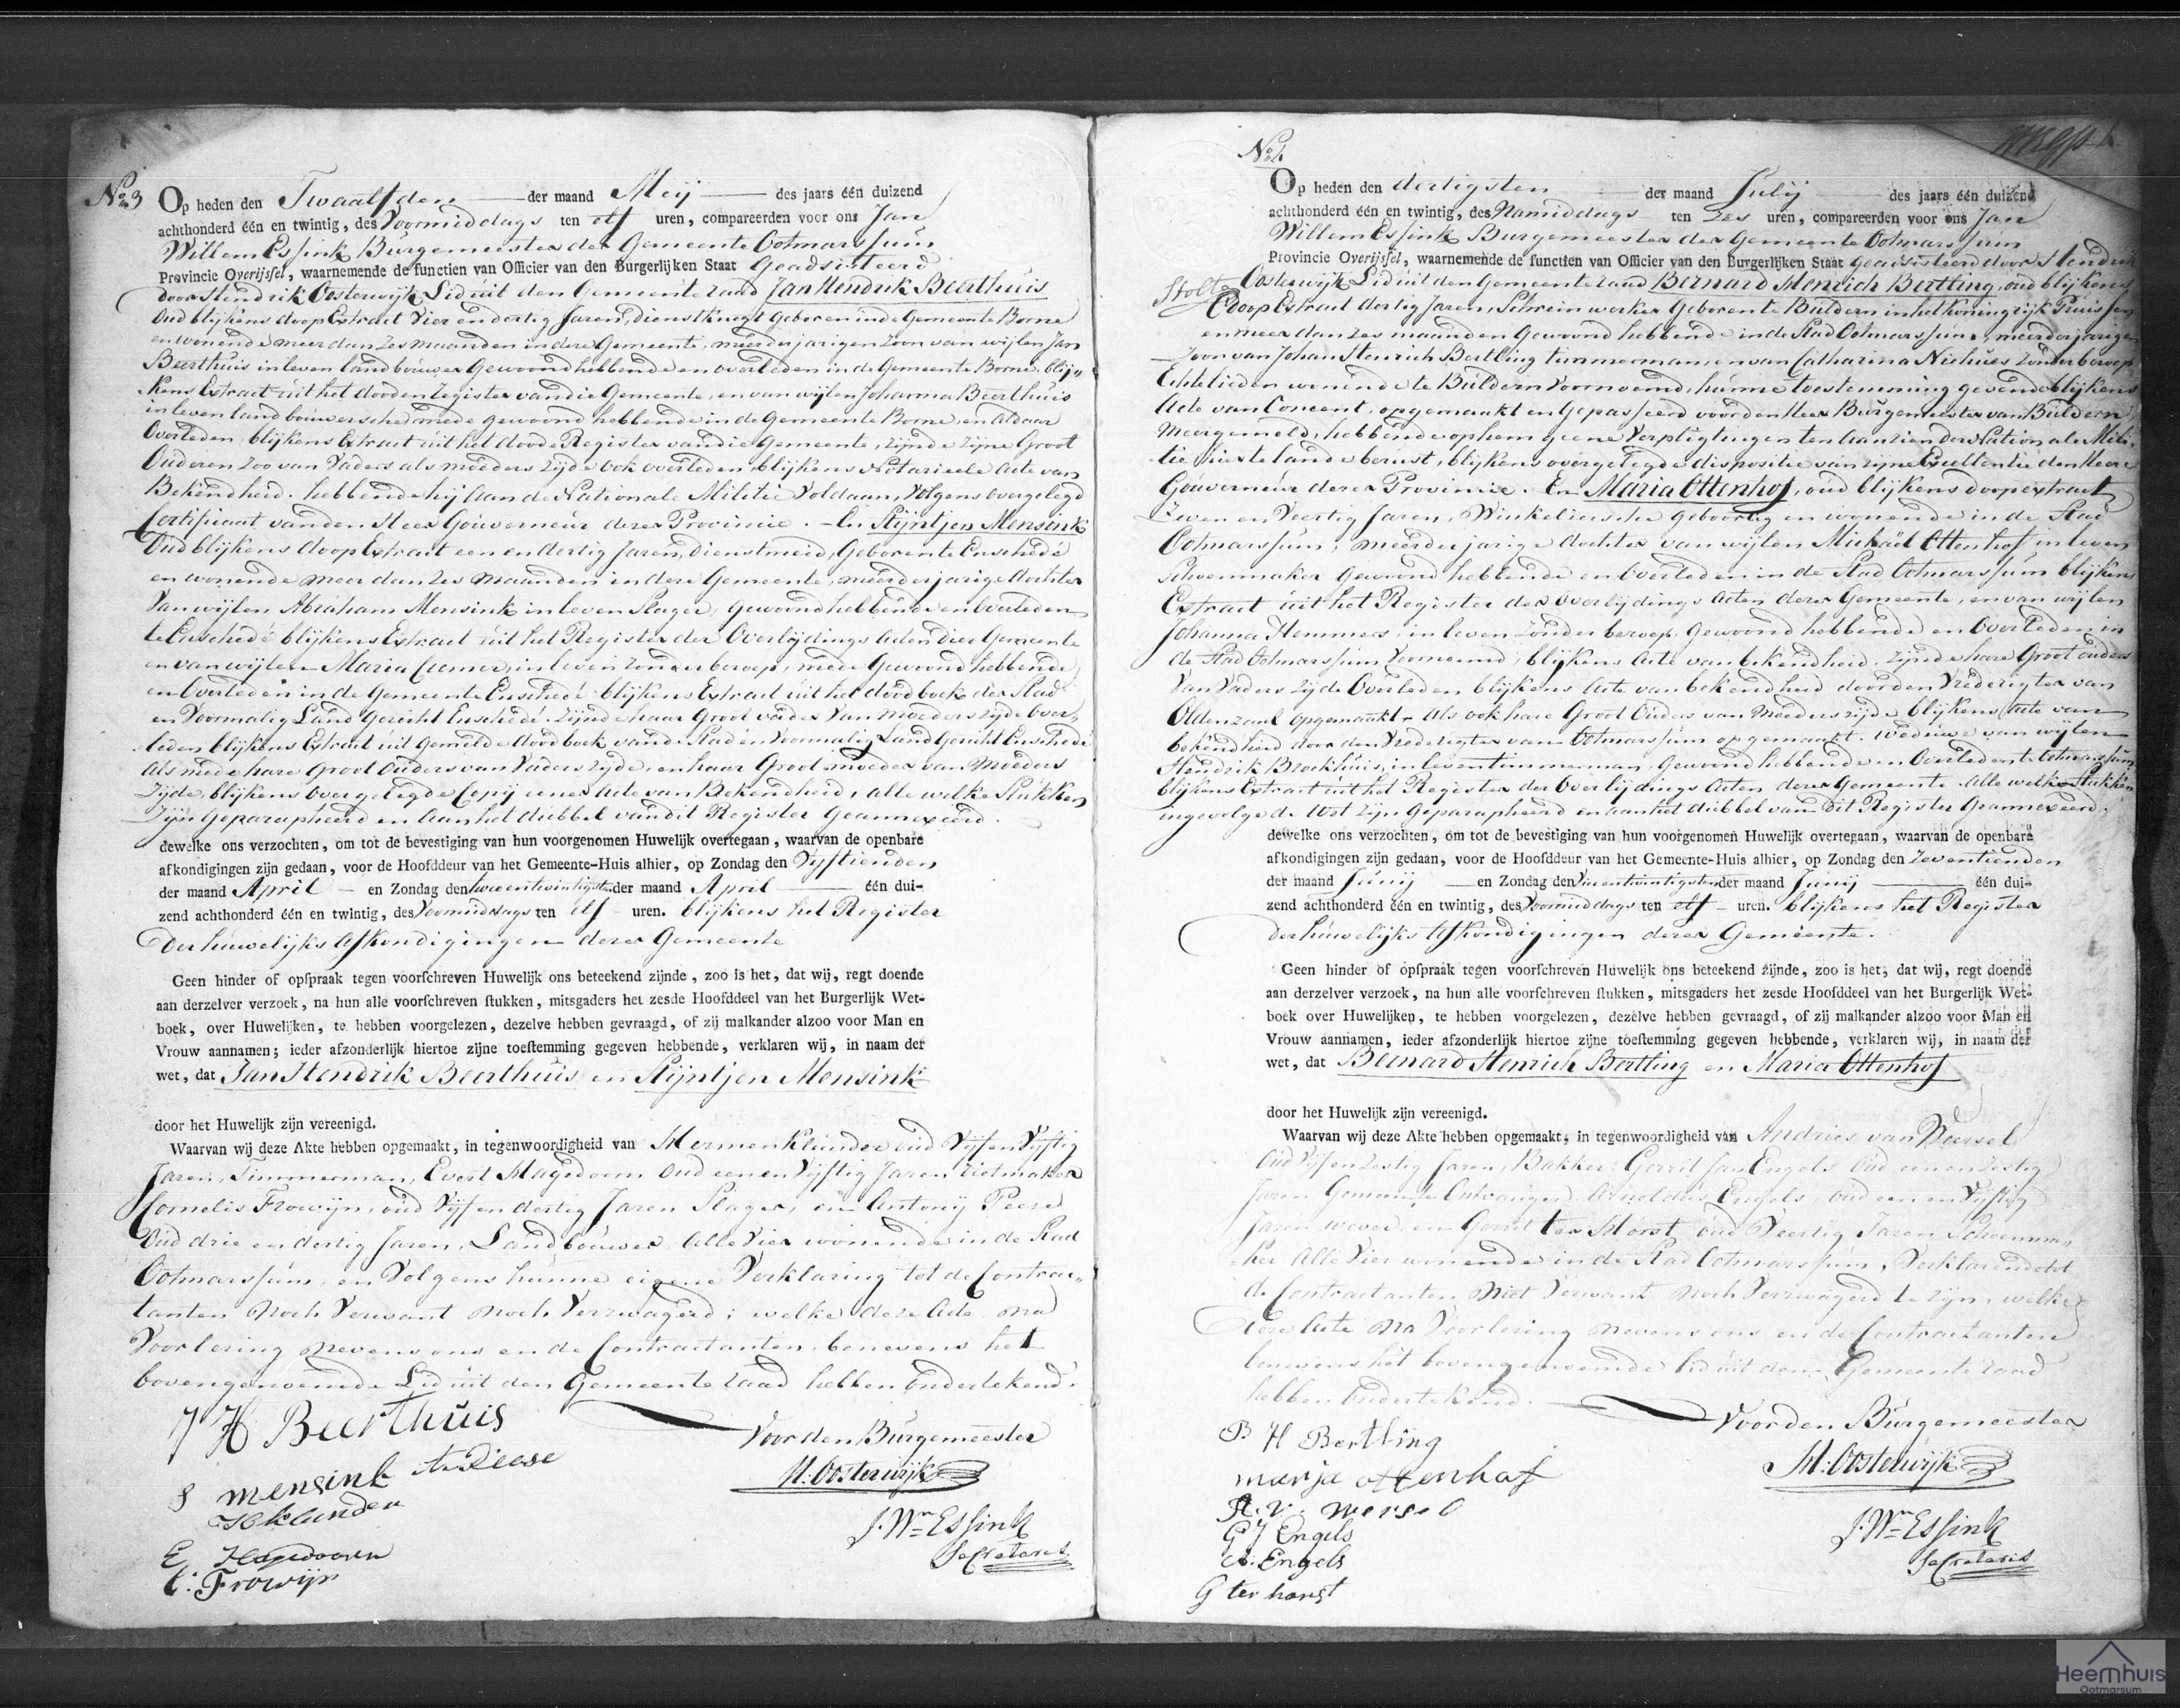 No 3 Op heden den Twaalfden der maand Meij des jaars één duizend
achthonderd één en twintig, des Voormiddags ten elf uren, compareerden voor ons Jan
Willem Essink Burgemeester der Gemeente Ootmarssum
Provincie Overijssel, waarnemende de functien van Officier van den Burgerlijken Staat Geadsisteerd
door Hendrik Oosterwijk Lid uit den Gemeente raad Jan Hendrik Beerthuis
Oud blijkens doop Extract Vier en dertig Jaren, dienstknegt Geboren in de Gemeente Borne
en wonende meer dan Zes maanden in deze Gemeente, meerderjarigen Zoon van wijlen Jan
Beerthuis in leven landbouwer Gewoond hebbende en overleden in de Gemeente Borne, blij„
kens Extract uit het dooden register van die Gemeente, en van wijlen Johanna Beerthuis
in leven landbouwersche mede gewoond hebbende in de Gemeente Borne, en Aldaar
Overleden, blijkens Extract uit het doode Register van die Gemeente, zijnde zijne Groot
Ouderen zoo van Vaders als moeders zijde ook overleden blijkens Notarieele Acte van
Bekendheid. hebbende hij Aan de Nationale Militie Voldaan, Volgens overgelegd
Certificaat van den Heer Gouverneur dezer Provincie. – En Stijntjen Mensink
Oud blijkens doop Extract een en dertig Jaren, dienstmeid, Geboren te Enschedé
en wonende meer dan zes maanden in deze Gemeente, meerderjarige dochter
Van wijlen Abraham Mensink in leven Slager, gewoond hebbende en overleden
te Enschedé blijkens Extract uit het Register der Overlijdings Acten dier Gemeente
en van wijlen Maria in leven zonder beroep, mede Gewoond hebbende
en Overleden in de Gemeente Enschedé blijkens Extract uit het doodboek der Stad
en Voormalig Land Gericht Enschedé. Zijnde haar Groot vader Van moeders zijde over„
leden blijkens Extract uit gemelde doodboek van de Stad en Voormalig Land Gericht Enschedé
Als mede hare Groot Ouders van Vaders zijde, en haar Groot moeder van Moeders
zijde, blijkens overgelegde Copij eener Acte van Bekendheid, alle welke Stukken
zijn Geparapheerd en Aan het dubbel van dit Register Geannexeerd.
dewelke ons verzochten, om tot de bevestiging van hun voorgenomen Huwelijk overtegaan, waarvan de openbare
afkondigingen zijn gedaan, voor de Hoofddeur van het Gemeente-Huis alhier, op Zondag den Vijftienden
der maand April en Zondag den twee en twintigsten der maand April één dui-
zend achthonderd één en twintig, des Voormiddags ten elf uren. blijkens het Register
Der huwelijks Afkondigingen dezer Gemeente
Geen hinder of opspraak tegen voorschreven Huwelijk ons beteekend zijnde, zoo is het, dat wij, regt doende
aan derzelver verzoek, na hun alle voorschreven stukken, mitsgaders het zesde Hoofddeel van het Burgerlijk Wet-
boek, over Huwelijken, te hebben voorgelezen, dezelve hebben gevraagd, of zij malkander alzoo voor Man en
Vrouw aannamen; ieder afzonderlijk hiertoe zijne toestemming gegeven hebbende, verklaren wij, in naam der
wet, dat Jan Hendrik Beerthuis en Stijntjen Mensink
door het Huwelijk zijn vereenigd.
Waarvan wij deze Akte hebben opgemaakt, in tegenwoordigheid van Hermen Klunder oud Vijf en Vijftig
Jaren, Timmerman, Evert Hagedoorn Oud een en Vijftig Jaren
Cornelis Frowijn, oud Vijf en dertig Jaren Slager, en Antonij Peese
Oud drie en dertig Jaren, Landbouwer Alle Vier wonende in de Stad
Ootmarssum, en Volgens hunne eigene Verklaring tot de Contrac„
tanten Noch Verwant Noch Verzwagerd; welke deze Acte na
Voorlezing Nevens ons en de Contractanten, benevens het
bovengenoemde Lid uit den Gemeente raad hebben Ondertekend.
J H Beerthuis
Voor den Burgemeester
S mensink
H: Oosterwijk
H klunder
J. Wm Essink
Secretaris
E Hagedoorn
C: Frowijn
No 4
Op heden den dertigsten der maand Julij des jaars één duizend
achthonderd één en twintig, des Namiddags ten Zes uren, compareerden voor ons Jan
Willem Essink Burgemeester der Gemeente Ootmarssum
Provincie Overijssel, waarnemende de functien van Officier van den Burgerlijken Staat geadsisteerd door Hendrik
Oosterwijk Lid uit den Gemeente raad Bernard Henrich Bertling, oud blijkens
doop Extract dertig Jaren, Schrein werker Geboren te Buldern in het Koningrijk Pruissen
en meer dan zes maanden Gewoond hebbende in de Stad Ootmarssum, meerderjarigen
Zoon van Johan Henrich Bertling timmerman, en van Catharina Niehues Zonder beroep
Echtelieden wonende te Buldern Voornoemd, hunne toestemming gevende blijkens
Acte van Concent, opgemaakt en Gepasseerd voor den Heer Burgemeester van Buldern
Meergemeld, hebbende op hem geene Verpligtingen ten Aanzien der Nationale Mili„
tie hier te lande berust, blijkens overgelegde dispositie van zijne Excellentie den Heere
Gouverneur dezer Provincie. En Maria Ottenhof, oud blijkens doop extract
Zeven en Veertig Jaren, Winkeliersche geboortig en wonende in de Stad
Ootmarssum, meerderjarige dochter van wijlen Michaël Ottenhof in leven
Schoenmaker Gewoond hebbende en Overleden in de Stad Ootmarssum blijkens
Extract uit het Register der Overlijdings Acten dezer Gemeente, en van wijlen
Johanna Hemmers, in leven Zonder beroep, Gewoond hebbende en Overleden in
de Stad Ootmarssum Voornoemd, blijkens Acte van bekendheid, zijnde hare Groot ouders
Van Vaders zijde Overleden blijkens Acte van bekendheid door den Vrederigter van
Oldenzaal opgemaakt – Als ook hare Groot Ouders van Moeders zijde blijkens Acte van
bekendheid door den Vrederigter van Ootmarssum opgemaakt. weduwe van wijlen
Hendrik Brockhuis, in leven timmerman, Gewoond hebbende en Overleden te Ootmarssum
blijkens Extract uit het Register der Overlijdings Acten dezer Gemeente. Alle welke Stukken
ingevolge de Wet zijn Geparapheerd en aan het dubbel van Dit Register Geannexeerd.
dewelke ons verzochten, om tot de bevestiging van hun voorgenomen Huwelijk overtegaan, waarvan de openbare
afkondigingen zijn gedaan, voor de Hoofddeur van het Gemeente-Huis alhier, op Zondag den Zeventienden
der maand Junij en Zondag den Vier en twintigsten der maand Junij één dui-
zend achthonderd één en twintig, des Voormiddags ten elf uren. blijkens het Register
der huwelijks Afkondigingen dezer Gemeente.
Geen hinder of opspraak tegen voorschreven Huwelijk ons beteekend zijnde, zoo is het, dat wij, regt doende
aan derzelver verzoek, na hun alle voorschreven stukken, mitsgaders het zesde Hoofddeel van het Burgerlijk Wet-
boek over Huwelijken, te hebben voorgelezen, dezelve hebben gevraagd, of zij malkander alzoo voor Man en
Vrouw aannamen, ieder afzonderlijk hiertoe zijne toestemming gegeven hebbende, verklaren wij, in naam der
wet, dat Bernard Henrich Bertling en Maria Ottenhof
door het Huwelijk zijn vereenigd.
Waarvan wij deze Akte hebben opgemaakt, in tegenwoordigheid van Andries van
Oud Vijf en Zestig Jaren, Bakker, Gerrit Jan Engels Oud een en Zestig
Jaren Gemeente Ontvanger, Arnoldus Engels, oud een en Vijftig
Jaren wever, en Gerrit ter Horst oud Veertig Jaren Schoenma„
ker Alle Vier wonende in de Stad Ootmarssum, Verklarende tot
de Contractanten Niet Verwant Noch Verzwagerd te zijn, welke
deze Acte Na Voorlezing Nevens ons en de Contractanten
benevens het bovengenoemde lid uit den Gemeente raad
hebben Ondertekend.
Voor den Burgemeester
B H Bertling
H: Oosterwijk
marja ottenhof
A. V. mersel
J. Wm Essink
G J Engels
Secretaris
A: Engels
G ter horst
Heemhuis
Ootmarsum